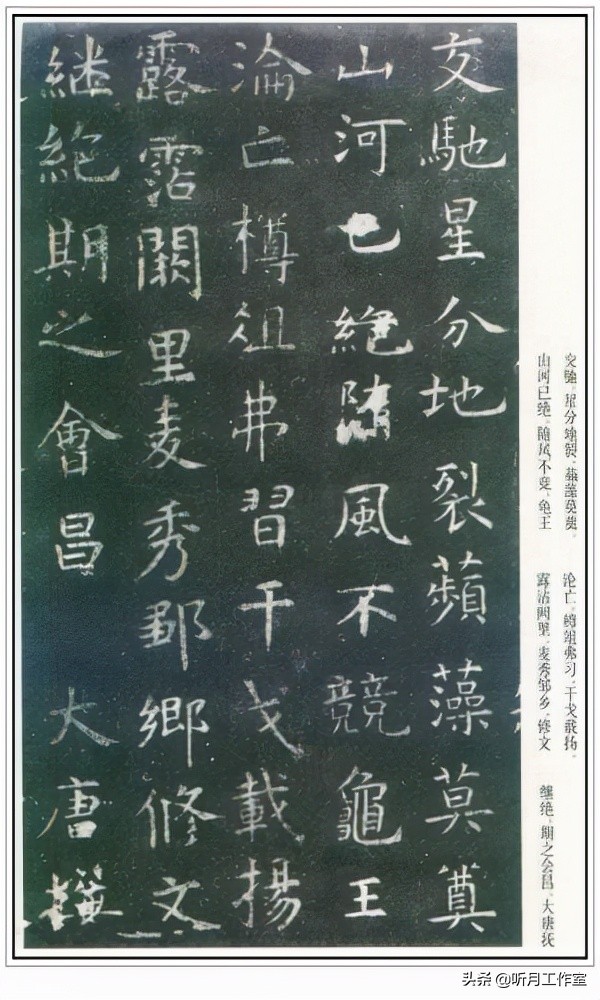 交馳星分地裂蘋藻莫奠
山河已絕隨風不競龜王
淪亡樽俎弗習干戈載揚
露霑闕里麦秀鄒鄉修文
繼絕期之會昌大唐撫
交驰。星分地裂。蘋藻莫奠。
山河已绝。随风不竞。龟王
沦亡。樽俎弗习。干戈载扬。
露沾阙里。麦秀邹乡。修文
继绝。期之会昌。大唐抚
头条 @听月工作室